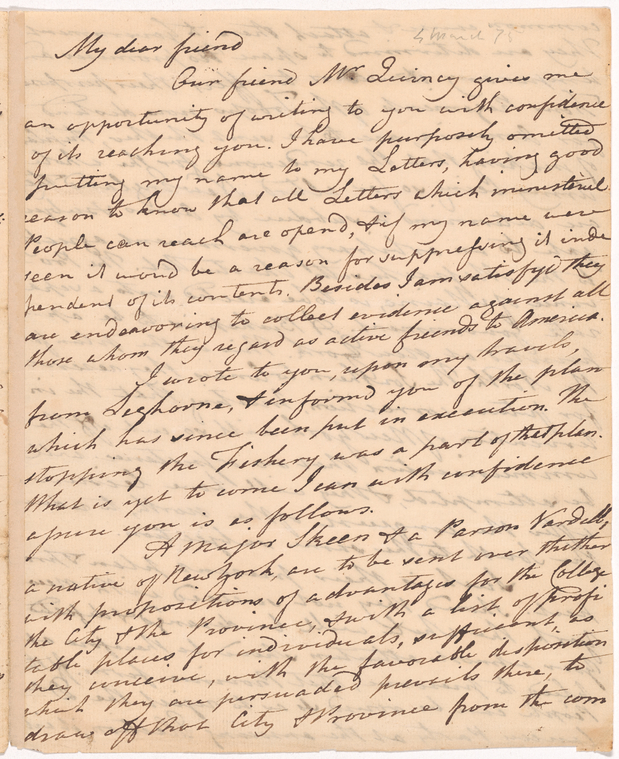 4 March 75
My dear friend
Our friend Mr Quincy gives me
an opportunity of writing to you with confidence
of its reaching you. I have purposely omitted
putting my name to my Letters, having good
reason to know that all Letters which ministerial
People can reach are opend, & if my name were
seen it would be a reason for suppressing it inde
pendent of its contents. Besides I am satisfyd they
are endeavoring to collect evidence against all
those whom they regard as active friends to America.
I wrote to you, upon my travels,
from Leghorne, & informd you of the plan
which has since been put in execution. The
stopping the Fishery was a part of that plan.
What is yet to come I can with confidence
assure you is as follows.
A Major Skeen & a Parson Vardell,
a native of New York, are to be sent over thither
with propositions of advantages for the College
the City & the Province, & with a list of profi
table places for individuals, sufficient, as
they conceive, with the favorable disposition
which they are persuaded prevails there, to
draw off that City & Province from the com